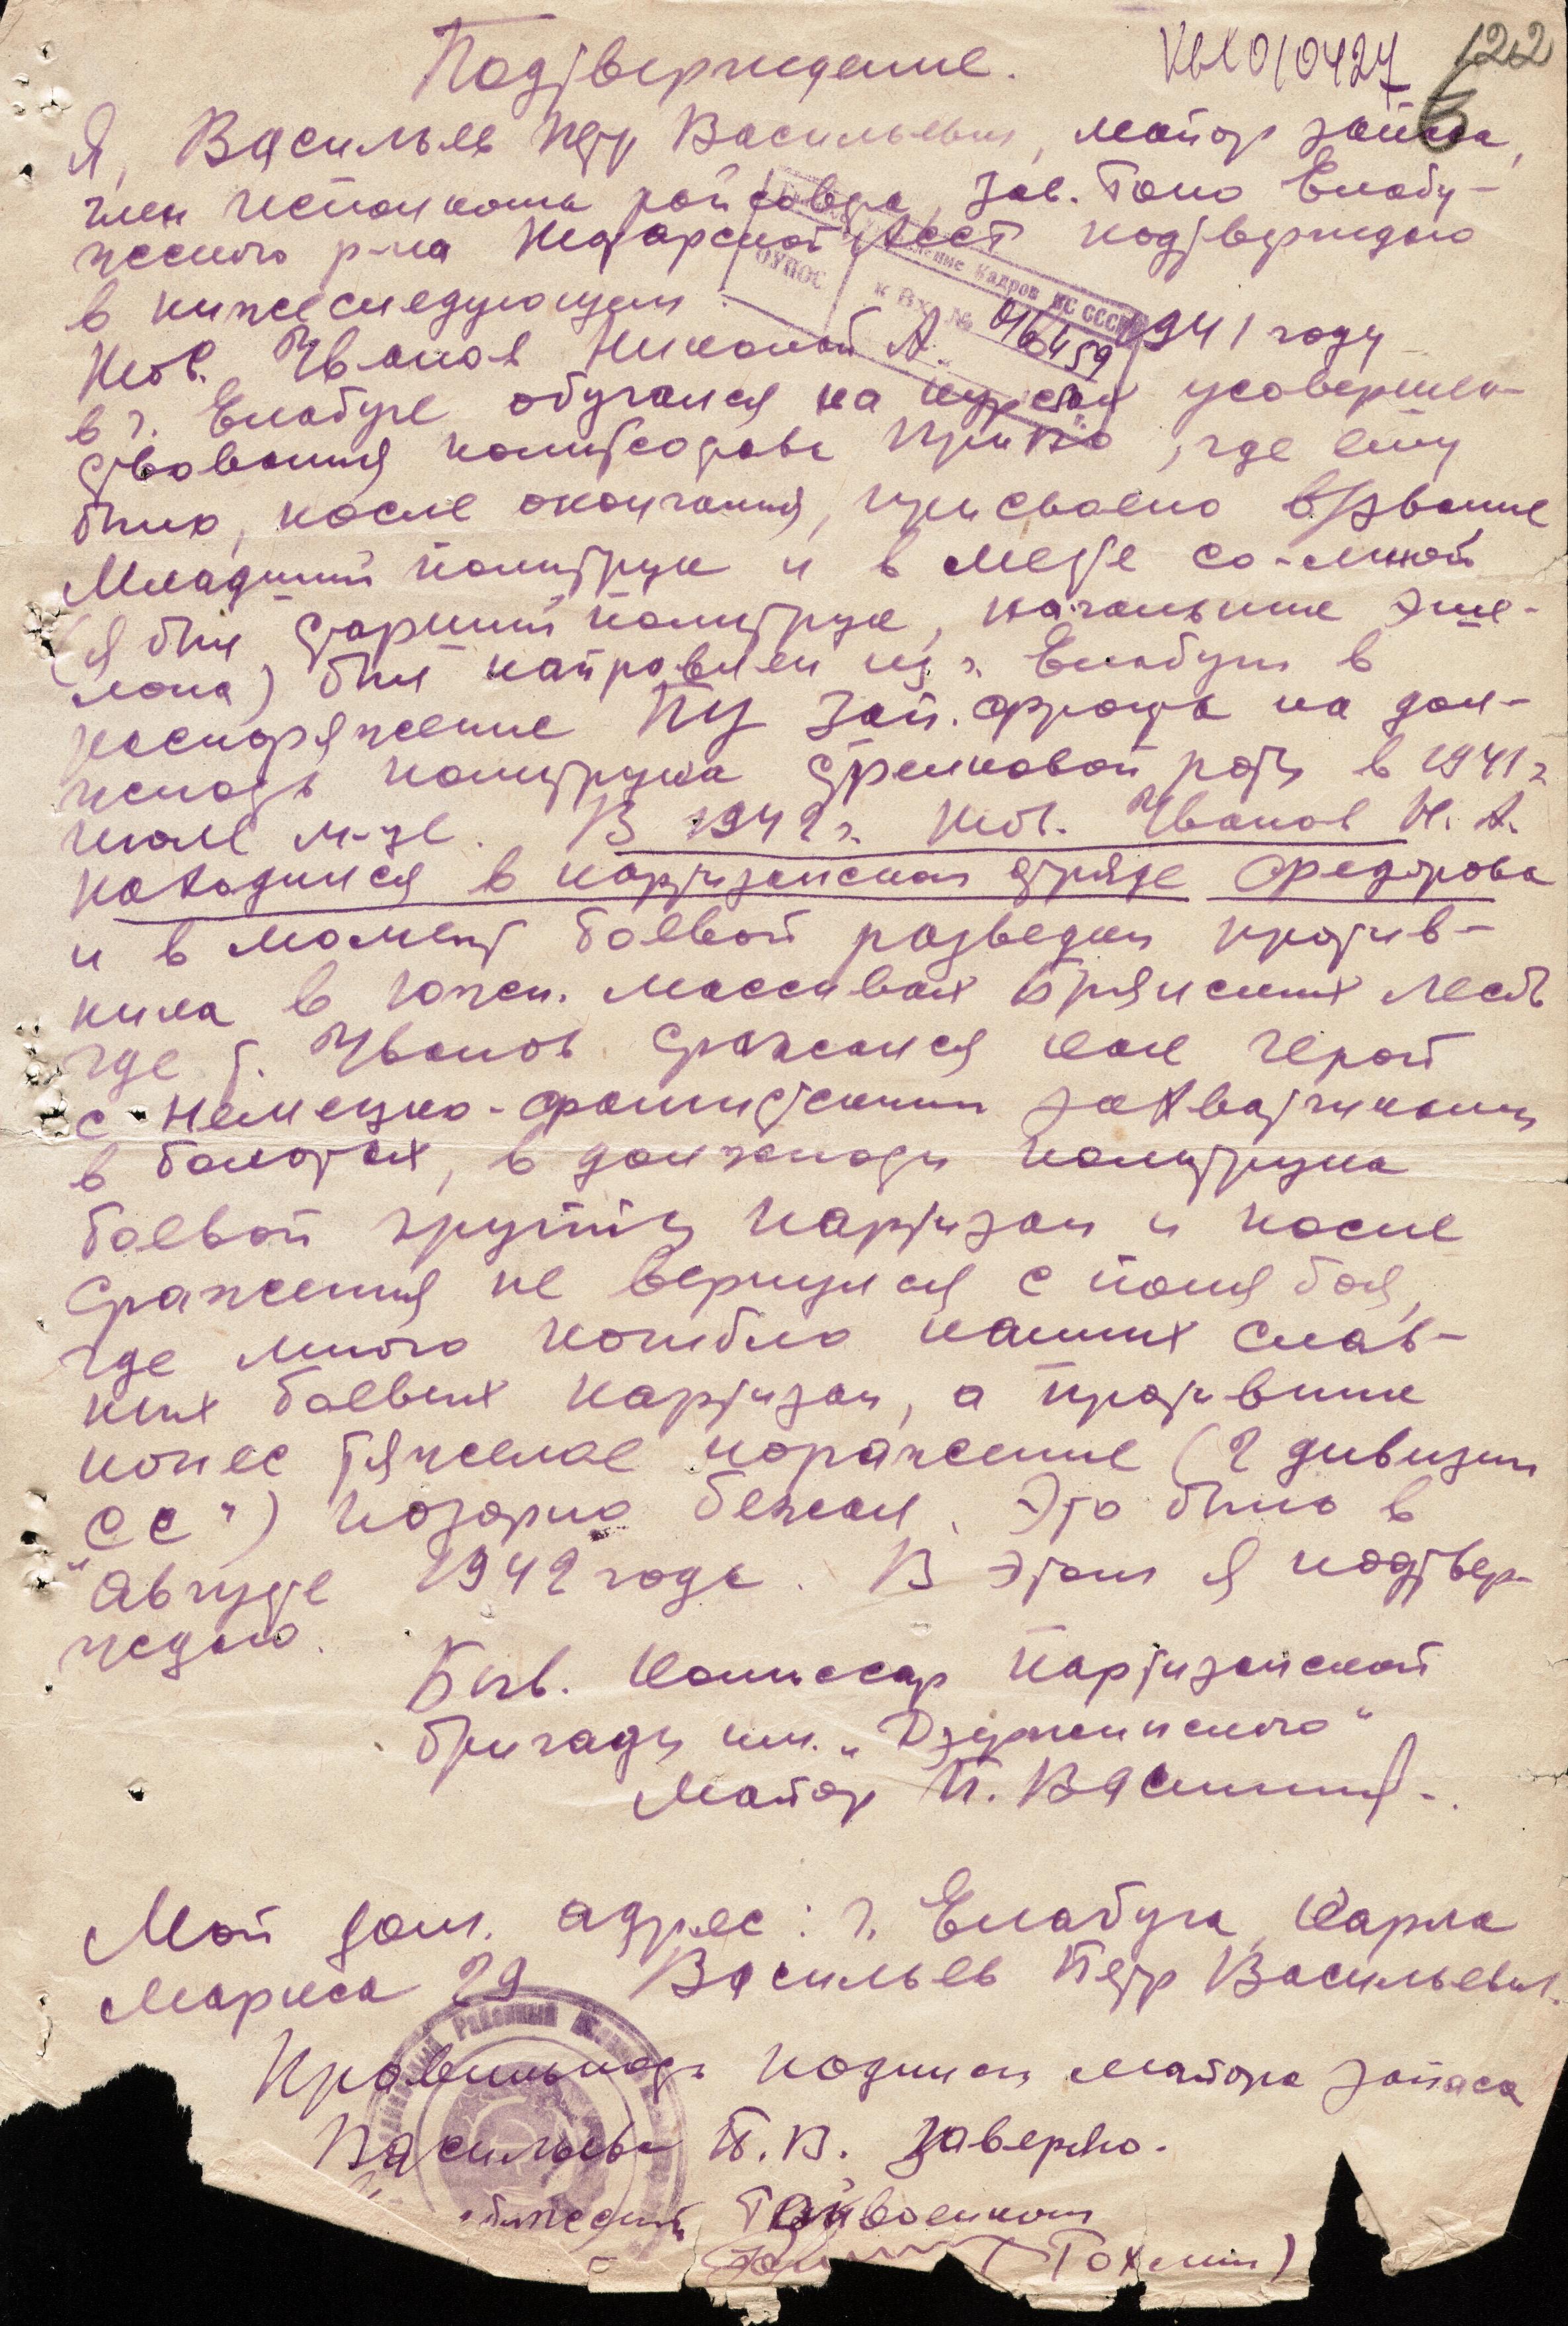 Подтверждение.
122
Я, Васильев Петр Васильевич, майор запаса,
член исполкома райсовета, зав. Гоно Елабу-
жского р-на Татарской АССР подтверждаю
в нижеследующем.
Тов. Иванов Николай А. 1941 году
в г. Елабуге обучался на курсах усовершен-
ствования политсостава ПриВО, где ему
было, после окончания, присвоено звание
Младший политрук и вместе со-мной
(я был старший политрук, начальник эше-
лона) был направлен из г. Елабуги в
распоряжение ПУ Зап. фронта на дол-
жность политрука стрелковой роты в 1941 г.
июле м-це. В 1942 г. тов. Иванов Н. А.
находился в партизанском отряде Федорова
и в момент боевой разведки против-
ника в южн. массивах Брянских лесов
где т. Иванов сражался как герой
с немецко-фашистскими захватчиками
в болотах, в должности политрука
боевой группы партизан и после
сражения не вернулся с поля боя,
где много погибло наших слав-
ных боевых партизан, а противник
понес тяжелое поражение (2 дивизии
"СС") позорно бежал. Это было в
августе 1942 года. В этом я подтвер-
ждаю.
Быв. комиссар партизанской
бригады им. "Дзержинского"
Майор П. Васильев.
Мой дом. адрес: г. Елабуга, Карла
Маркса 29 Васильев Петр Васильевич.
Правильность подписи майора запаса
Васильева П. В. заверяю.
Райвоенком